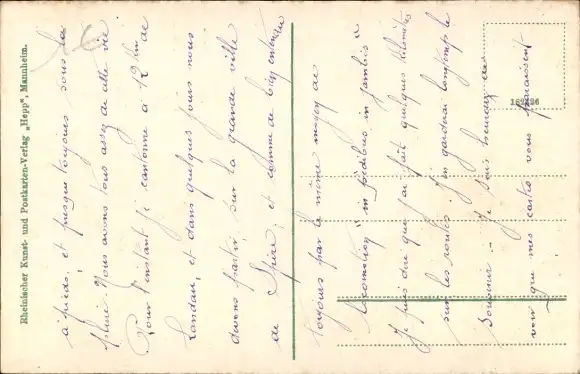 Rheinischer Kunst- und Postkarten-Verlag „Hepp", Mannheim.
à pieds, et presque toujours sous la
pluie. Nous avons tous assez de cette vie
Pour l'instant je cantonne à 12 km de
Landau, et dans quelques jours nous
devons partir sur la grande ville
de Spire, et comme de bien entendu
toujours par le même moyen de
locomotion "in pedibus in jambis"
Je puis dire que j'ai fait quelques kilomètres
sur les routes. J'en garderai longtemps le
souvenir. - Je suis heureux de
voir que mes cartes vous plaisent
182426